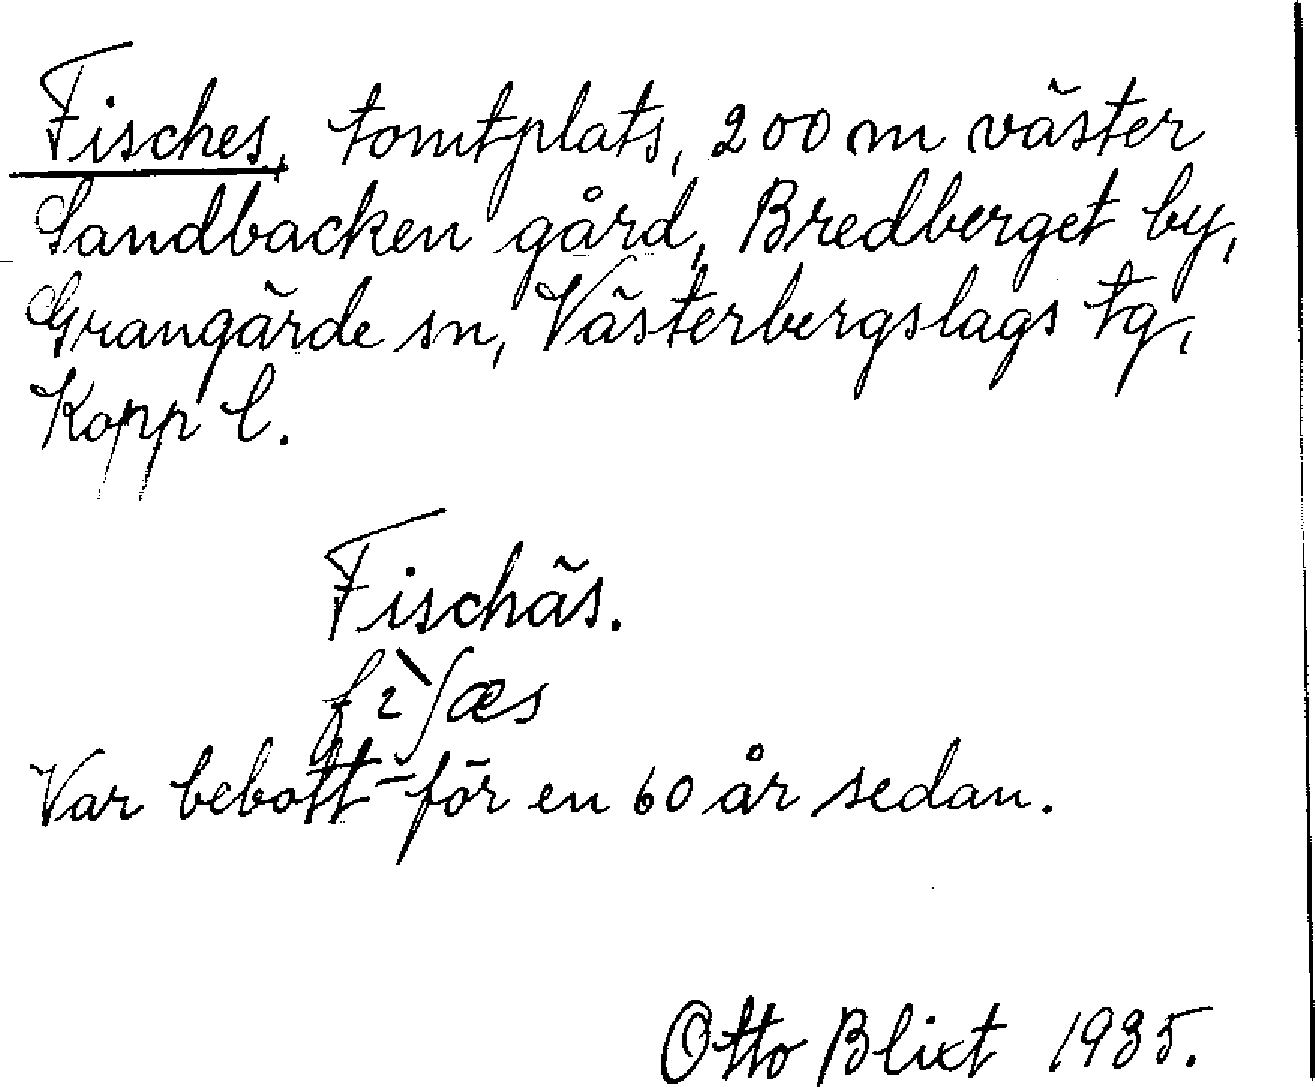 Fisches, tomtplats, 200 m väster
Sandbacken gård, Bredberget by,
Grangärde sn, Västerbergslags tg,
Kopp l.
Fischäs.
fɪ`ʃæs
Var bebott för en 60 år sedan.
Otto Blixt 1935.